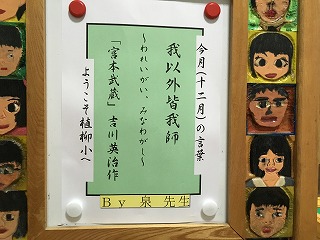 今月(十二月)の言葉
我以外皆我師
～われいがい、みなわがし～
「宮本武蔵」吉川英治作
ようこそ植柳小へ
By 泉 先生